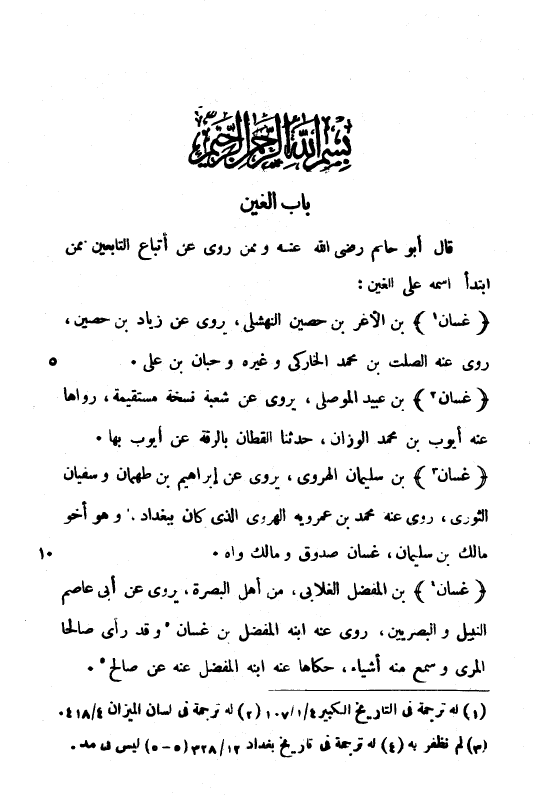 بسم الله الرحمن الرحيم
باب الغين
قال أبو حاتم رضى الله عنه و ممن روى عن أتباع التابعين ممن
ابتدأ اسمه على الغين :
﴿ غسان¹ ﴾ بن الأغر بن حصين النهشلى، يروى عن زياد بن حصين،
روى عنه الصلت بن محمد الخاركى و غيره و حبان بن على . ٥
﴿ غسان² ﴾ بن عبيد الموصلى، يروى عن شعبة نسخة مستقيمة، رواها
عنه أيوب بن محمد الوزان، حدثنا القطان بالرقة عن أيوب بها .
﴿ غسان³ ﴾ بن سليمان الهروى، يروى عن إبراهيم بن طهمان و سفيان
الثورى، روى عنه محمد بن عمرويه الهروى الذى كان ببغداد . و هو أخو
مالك بن سليمان، غسان صدوق و مالك واه . ١٠
﴿ غسان⁴ ﴾ بن المفضل الغلابى، من أهل البصرة، يروى عن أبى عاصم
النبيل و البصريين، روى عنه ابنه المفضل بن غسان ⁵و قد رأى صالحا
المرى و سمع منه أشياء، حكاها عنه ابنه المفضل عنه عن صالح⁵ .
(١) له ترجمة فى التاريخ الكبير ١٠٧/١/٤ (٢) له ترجمة فى لسان الميزان ٤١٨/٤ .
(٣) لم نظفر به (٤) له ترجمة فى تاريخ بغداد ٣٢٨/١٢ (٥-٥) ليس فى مد .